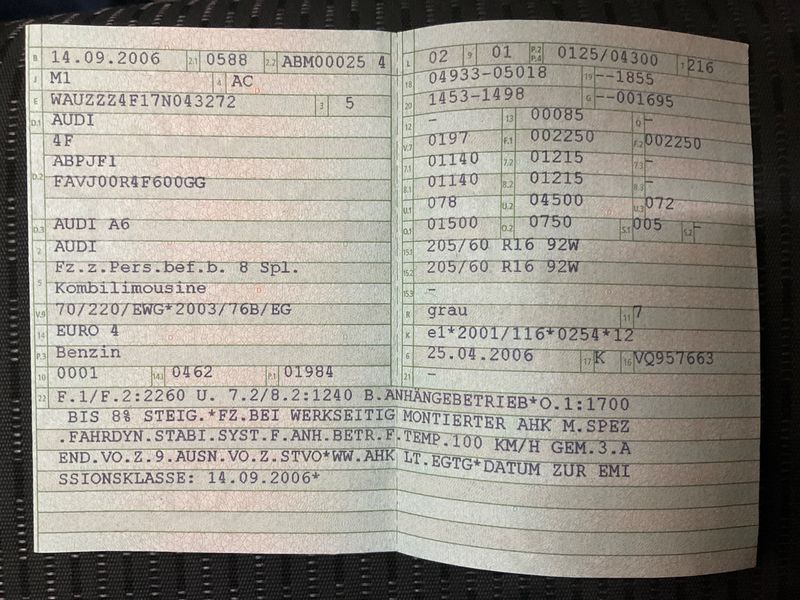 B 14.09.2006 2.1 0588 2.2 ABM00025 4
J M1 4 AC
E WAUZZZ4F17N043272 3 5
D.1 AUDI
4F
D.2 ABPJF1
FAVJ00R4F600GG
D.3 AUDI A6
2 AUDI
5 Fz.z.Pers.bef.b. 8 Spl.
Kombilimousine
V.9 70/220/EWG*2003/76B/EG
14 EURO 4
P.3 Benzin
10 0001 14.1 0462 P.1 01984
L 02 9 01 P.2 P.4 0125/04300 T 216
18 04933-05018 19 --1855
20 1453-1498 G --001695
12 - 13 00085 Q -
V.7 0197 F.1 002250 F.2 002250
7.1 01140 7.2 01215 7.3 -
8.1 01140 8.2 01215 8.3 -
U.1 078 U.2 04500 U.3 072
O.1 01500 O.2 0750 S.1 005 S.2 -
15.1 205/60 R16 92W
15.2 205/60 R16 92W
15.3 -
R grau 11 7
K e1*2001/116*0254*12
6 25.04.2006 17 K 16 VQ957663
21 -
22 F.1/F.2:2260 U. 7.2/8.2:1240 B.ANHÄNGEBETRIEB*O.1:1700
BIS 8% STEIG.*FZ.BEI WERKSEITIG MONTIERTER AHK M.SPEZ
.FAHRDYN.STABI.SYST.F.ANH.BETR.F.TEMP.100 KM/H GEM.3.A
END.VO.Z.9.AUSN.VO.Z.STVO*WW.AHK LT.EGTG*DATUM ZUR EMI
SSIONSKLASSE: 14.09.2006*